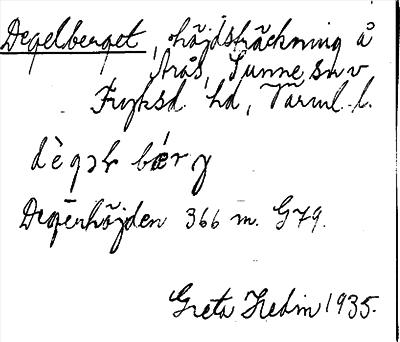 Degelberget, höjdsträckning å
Årås, Sunne sn v.
Fryksd. hd, Värml. l.
dègəɫ bærg
Degerhöjden 366 m. G79.
Greta Hedin 1935.